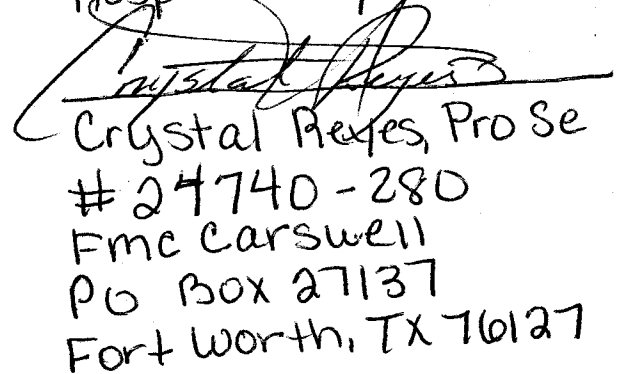 Crystal Reyes
Crystal Reyes, Pro Se
# 24740-280
Fmc Carswell
PO Box 27137
Fort Worth, TX 76127